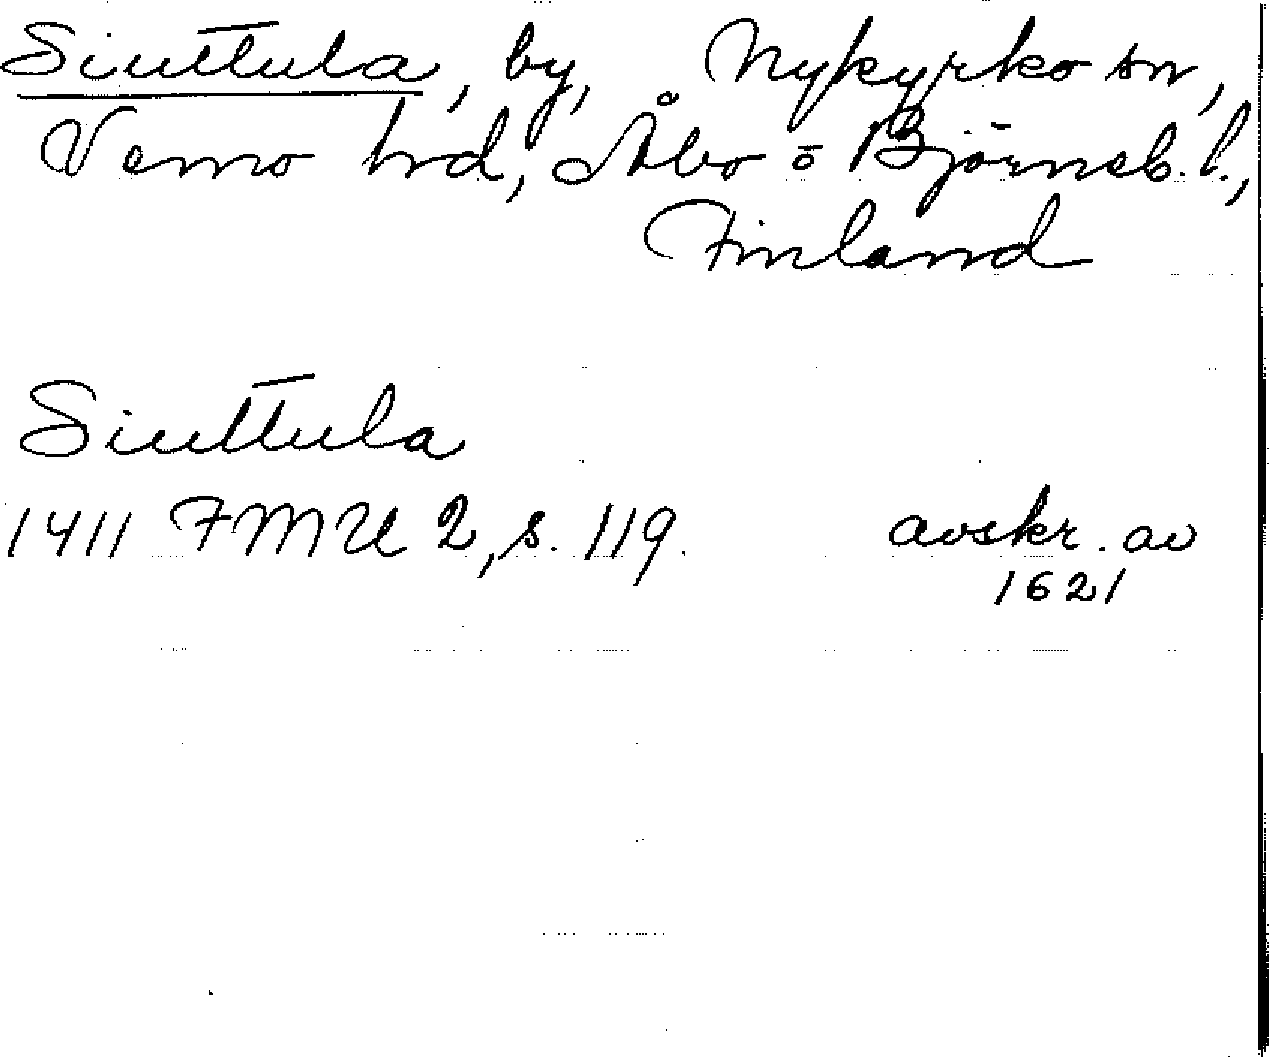 Siuttula, by, Nykyrko sn,
Vemo hrd, Åbo o Björneb. l.,
Finland
Siuttula
1411 FMU 2, s. 119.
avskr. av
1621